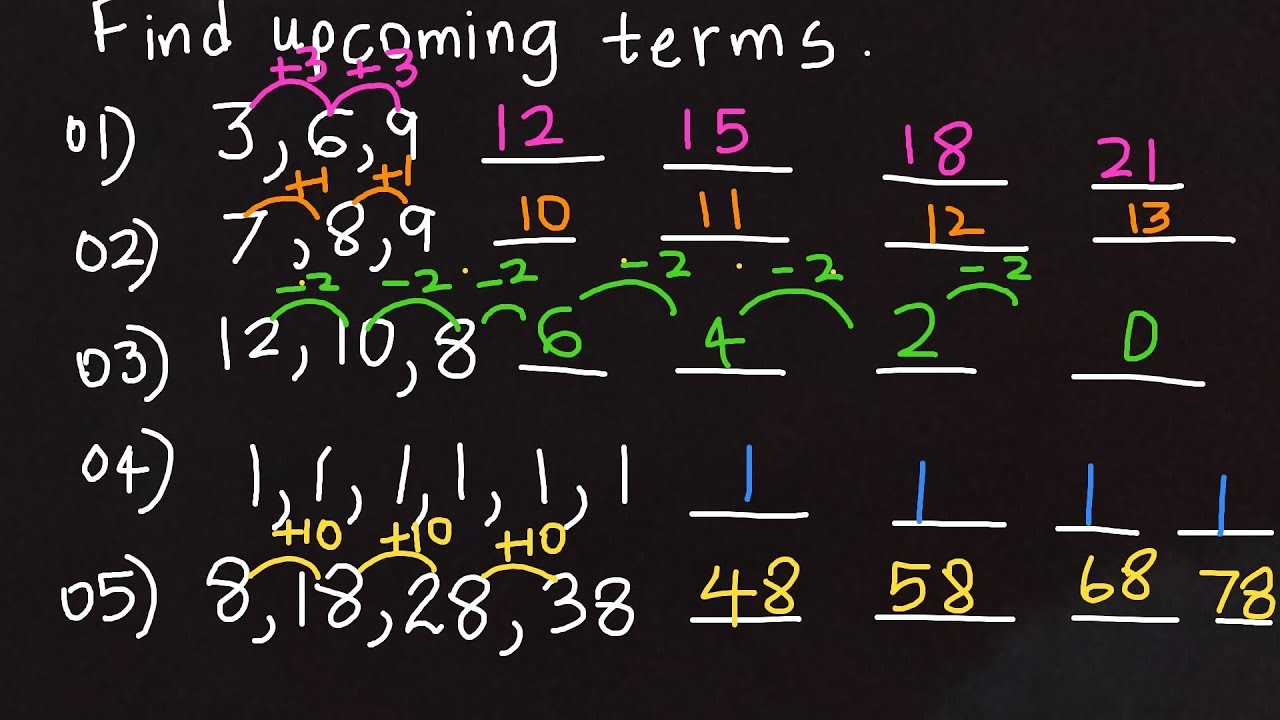 Find upcoming terms.
+3 +3
01) 3, 6, 9 12 15 18 21
+1 +1
02) 7, 8, 9 10 11 12 13
-2 -2 -2 -2 -2 -2
03) 12, 10, 8 6 4 2 0
04) 1, 1, 1, 1, 1, 1 1 1 1 1
+10 +10 +10
05) 8, 18, 28, 38 48 58 68 78